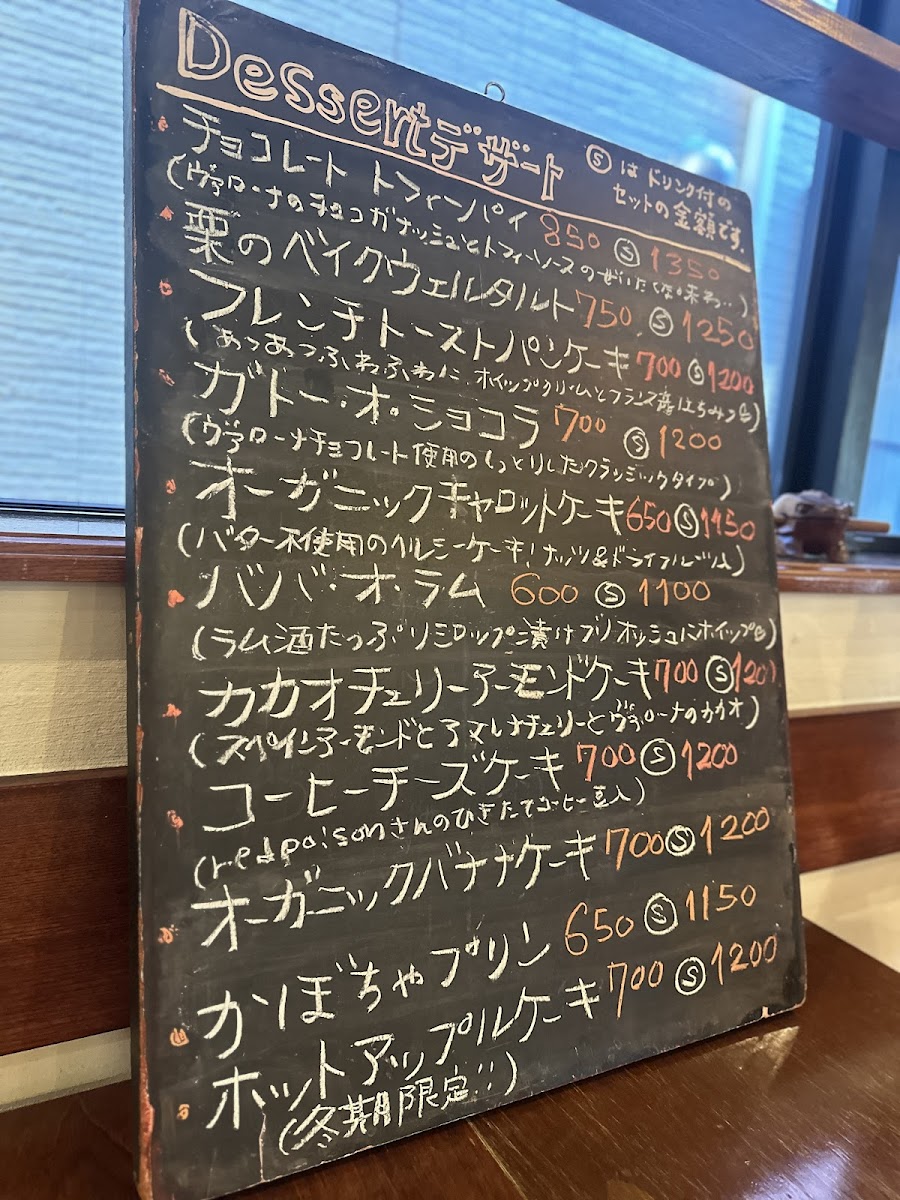 Dessert デザート
Ⓢ は ドリンク付の
セットの金額です。
チョコレート トフィーパイ 850 Ⓢ 1350
(ヴァローナの チョコ ガナッシュとトフィーソースのぜいたくな味わ..)
栗のベイクウェルタルト 750 Ⓢ 1250
フレンチトーストパンケーキ 700 Ⓢ 1200
(あつあつふわふわに、ホイップクリームとフランス産はちみつ)
ガトー・オ・ショコラ 700 Ⓢ 1200
(ヴァローナチョコレート使用のしっとりしたクラシックタイプ)
オーガニックキャロットケーキ 650 Ⓢ 1150
(バター不使用のヘルシーケーキ! ナッツ&ドライフルーツ入)
ババ・オ・ラム 600 Ⓢ 1100
(ラム酒たっぷりシロップ漬けブリオッシュにホイップ)
カカオチェリーアーモンドケーキ 700 Ⓢ 1200
(スペインアーモンドとアマレナチェリーとヴァローナのカカオ)
コーヒーチーズケーキ 700 Ⓢ 1200
(redpoisonさんのひきたてコーヒー豆入)
オーガニックバナナケーキ 700 Ⓢ 1200
かぼちゃプリン 650 Ⓢ 1150
ホットアップルケーキ 700 Ⓢ 1200
(冬期限定!!)